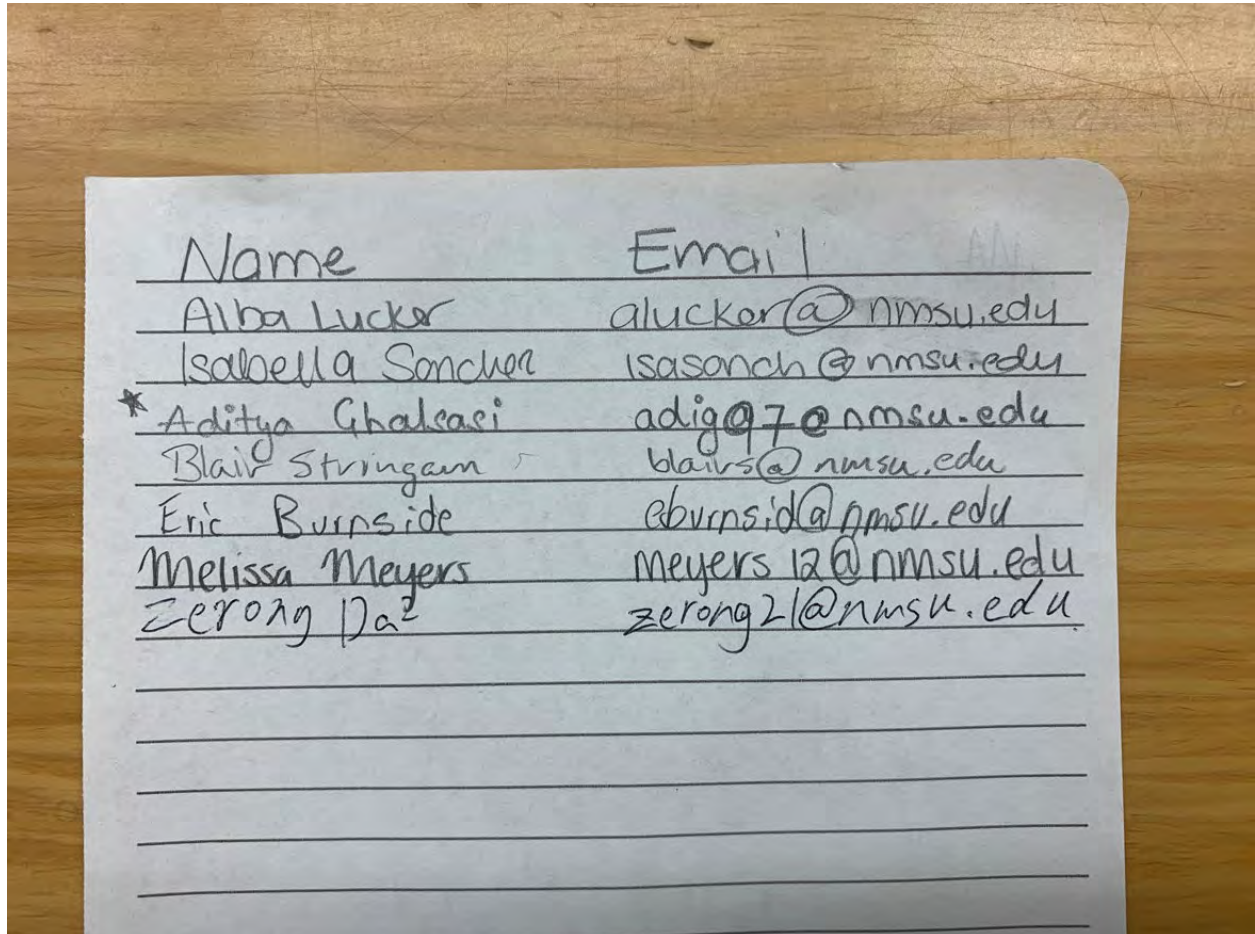 Name Email
Alba Lucker alucker@nmsu.edu
Isabella Sanchez isasanch@nmsu.edu
★ Aditya Ghalsasi adig97@nmsu.edu
Blair Stringam blairs@nmsu.edu
Eric Burnside eburnsid@nmsu.edu
Melissa Meyers meyers12@nmsu.edu
Zerong zerong21@nmsu.edu